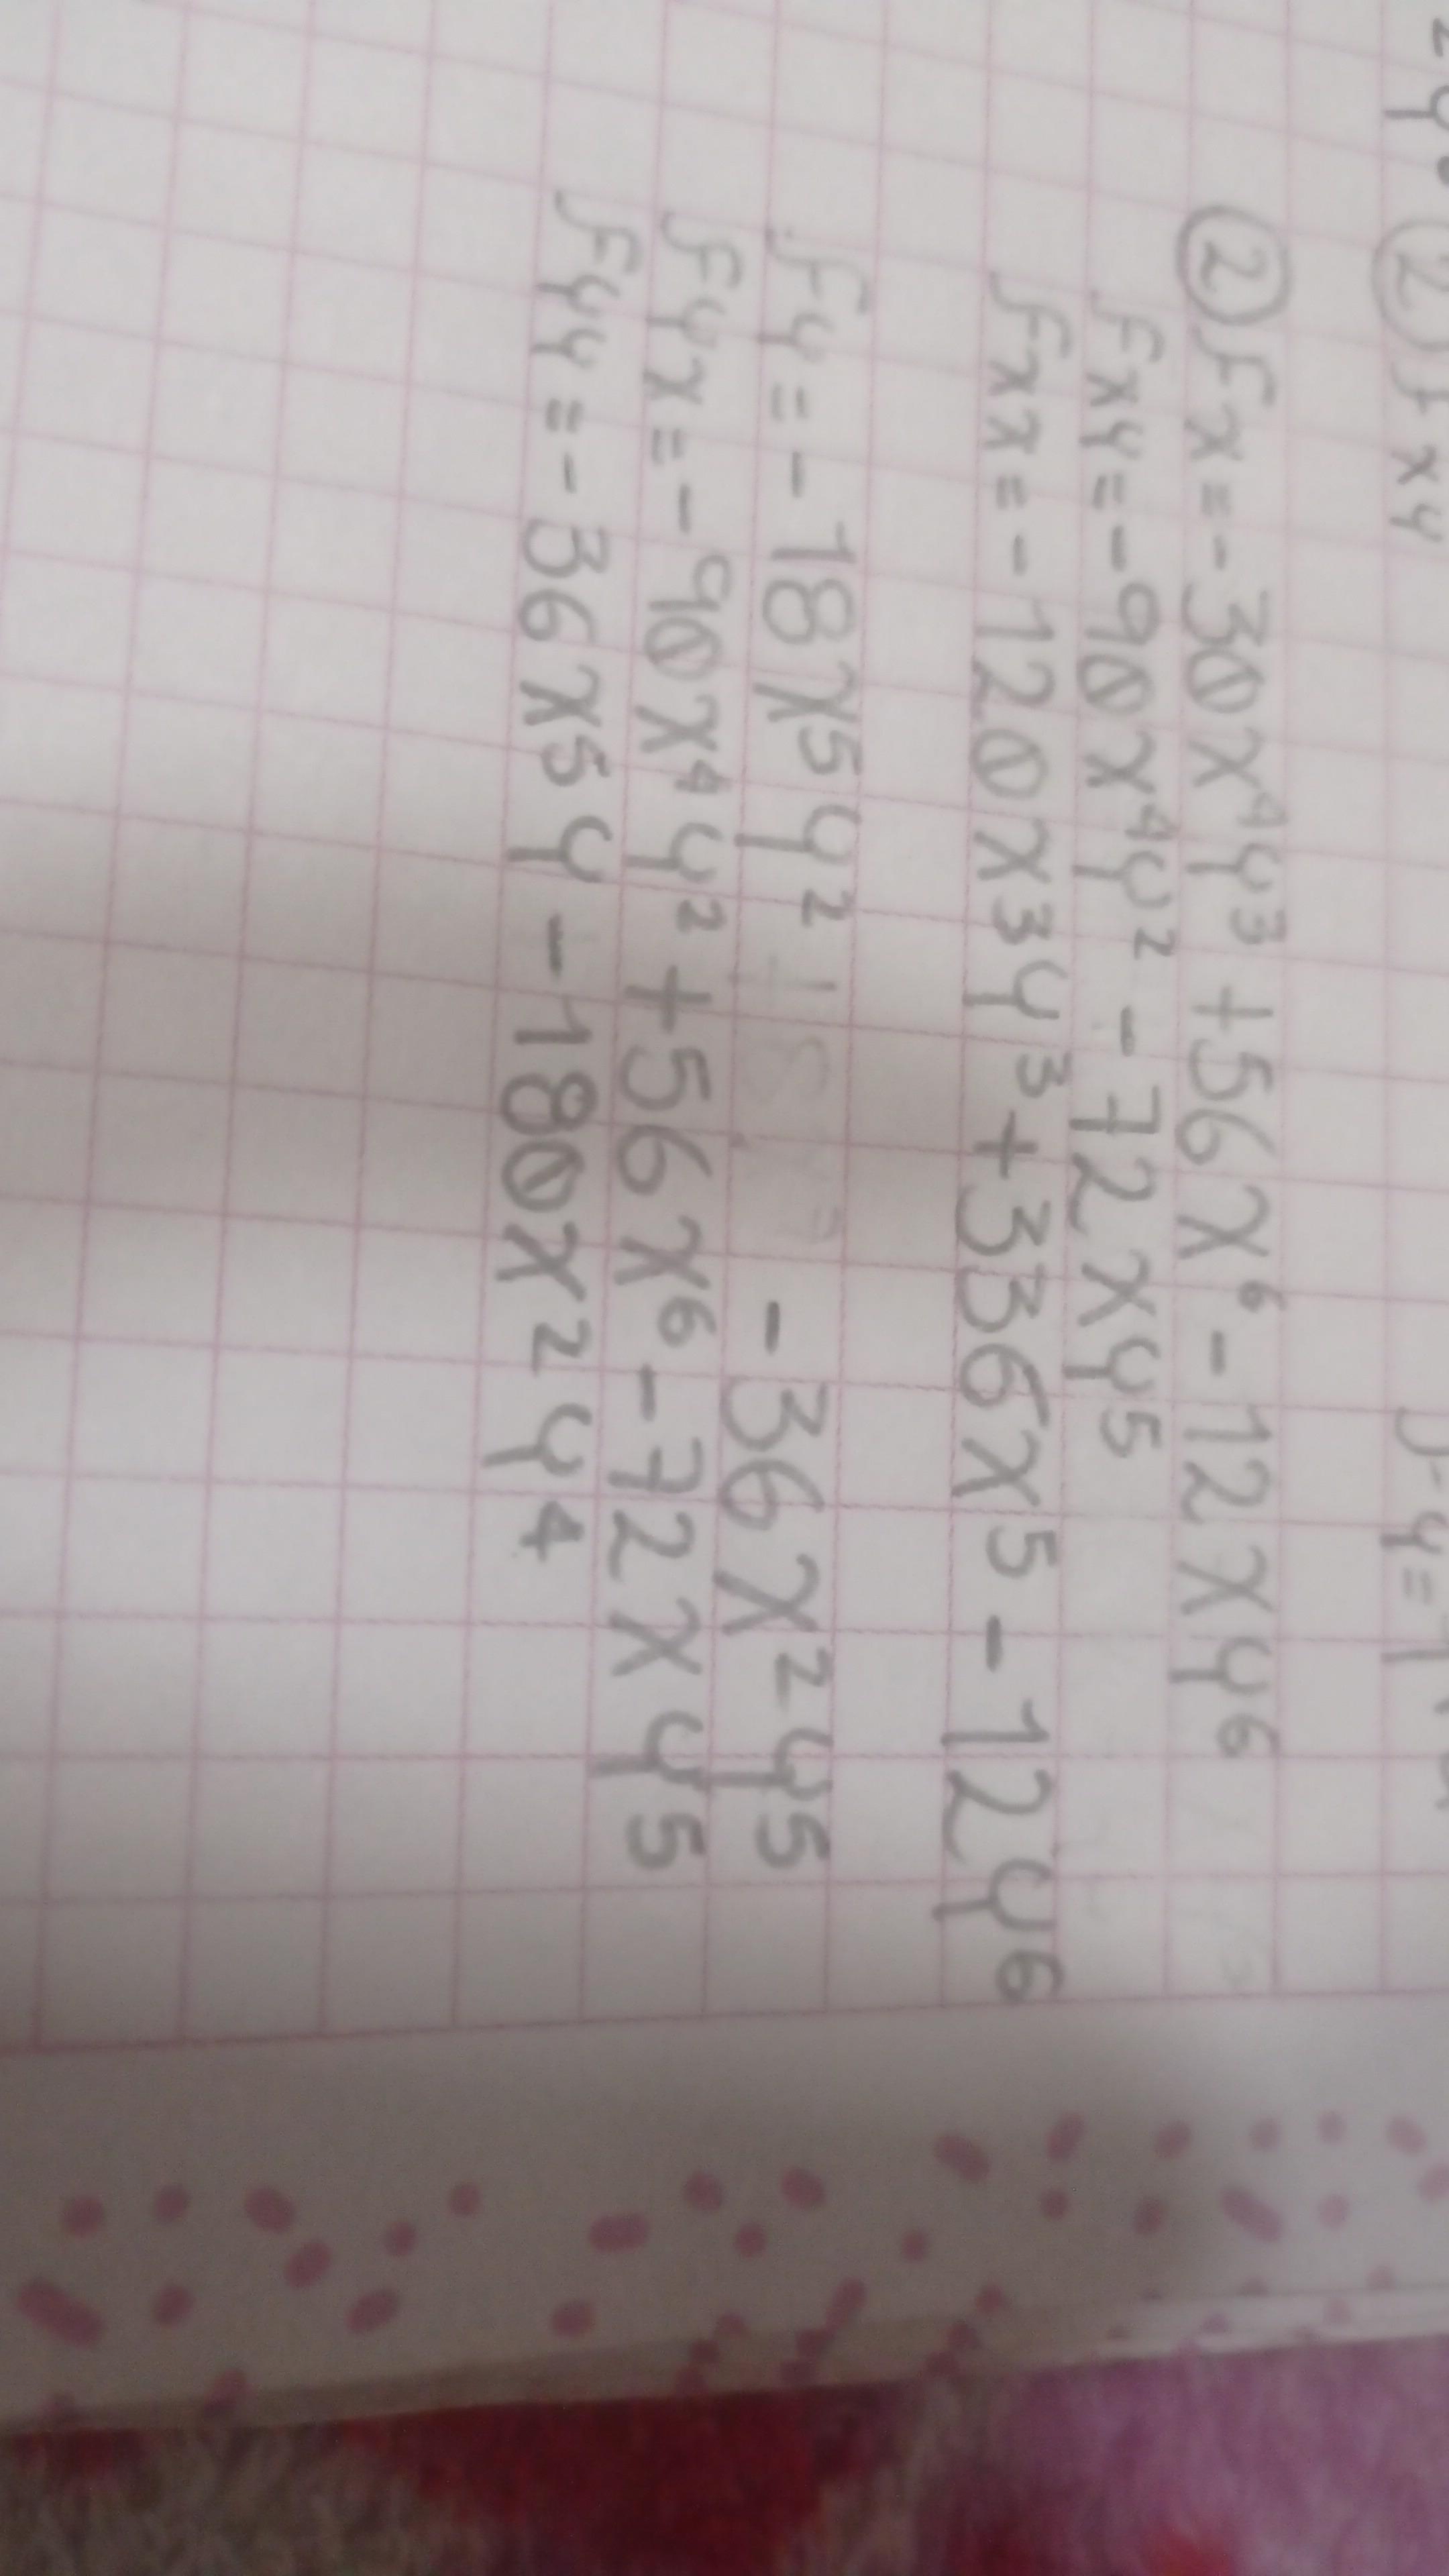 ② fx = -30x⁴y³ + 56x⁶ - 12xy⁶
fxy = -90x⁴y² - 72xy⁵
fxx = -120x³y³ + 336x⁵ - 12y⁶
fy = -18x⁵y² - 36x²y⁵
fyx = -90x⁴y² + 56x⁶ - 72xy⁵
fyy = -36x⁵y - 180x²y⁴